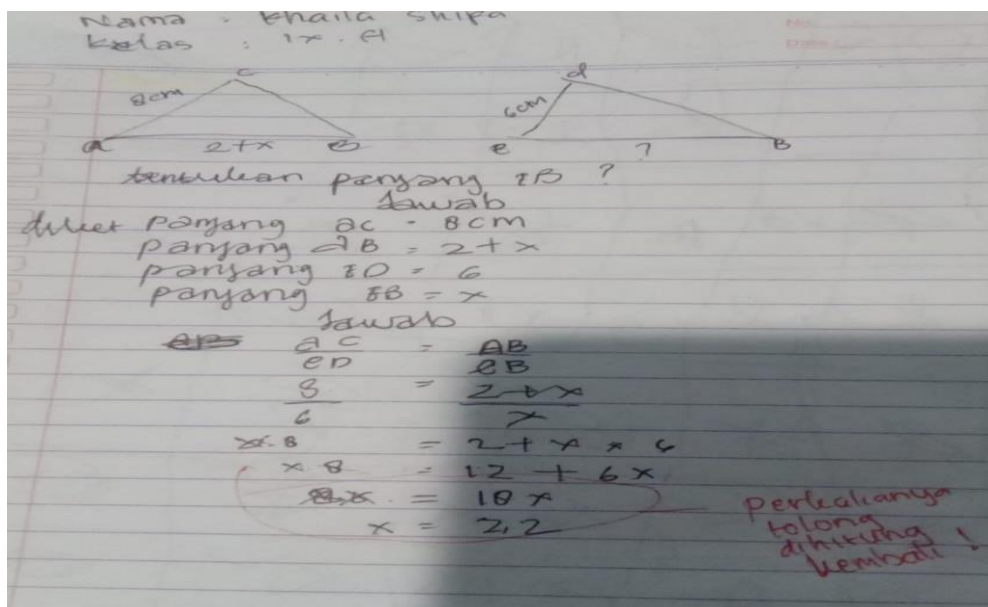 Nama : Khaila Shifa
Kelas : IX. A
C
8cm
a
2+x
B
d
6cm
e
?
B
tentukan panjang EB ?
Jawab
diket panjang ac = 8cm
panjang AB = 2 + x
panjang ED = 6
panjang EB = x
Jawab
ac = AB
eD eB
8 = 2 + x
6 x
x. 8 = 2 + x × 6
x 8 = 12 + 6x
8x = 18x
x = 2,2
perkalianya
tolong
dihitung
kembali !